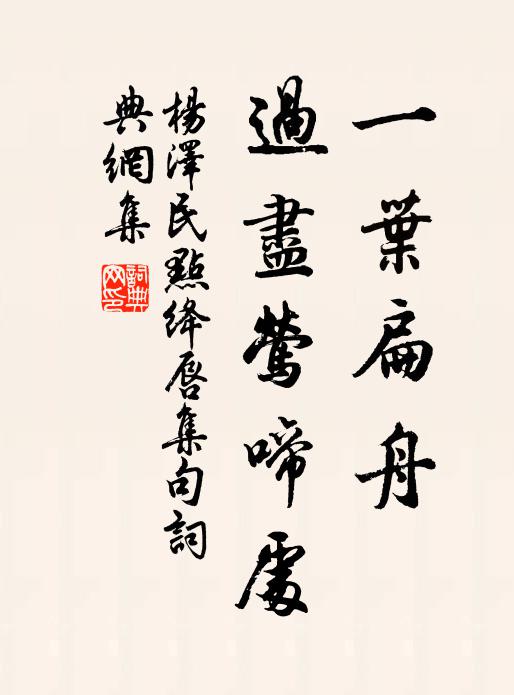 一葉扁舟
過盡鶯啼處
楊澤民點绛唇集句詞
典網集
詞典
网印